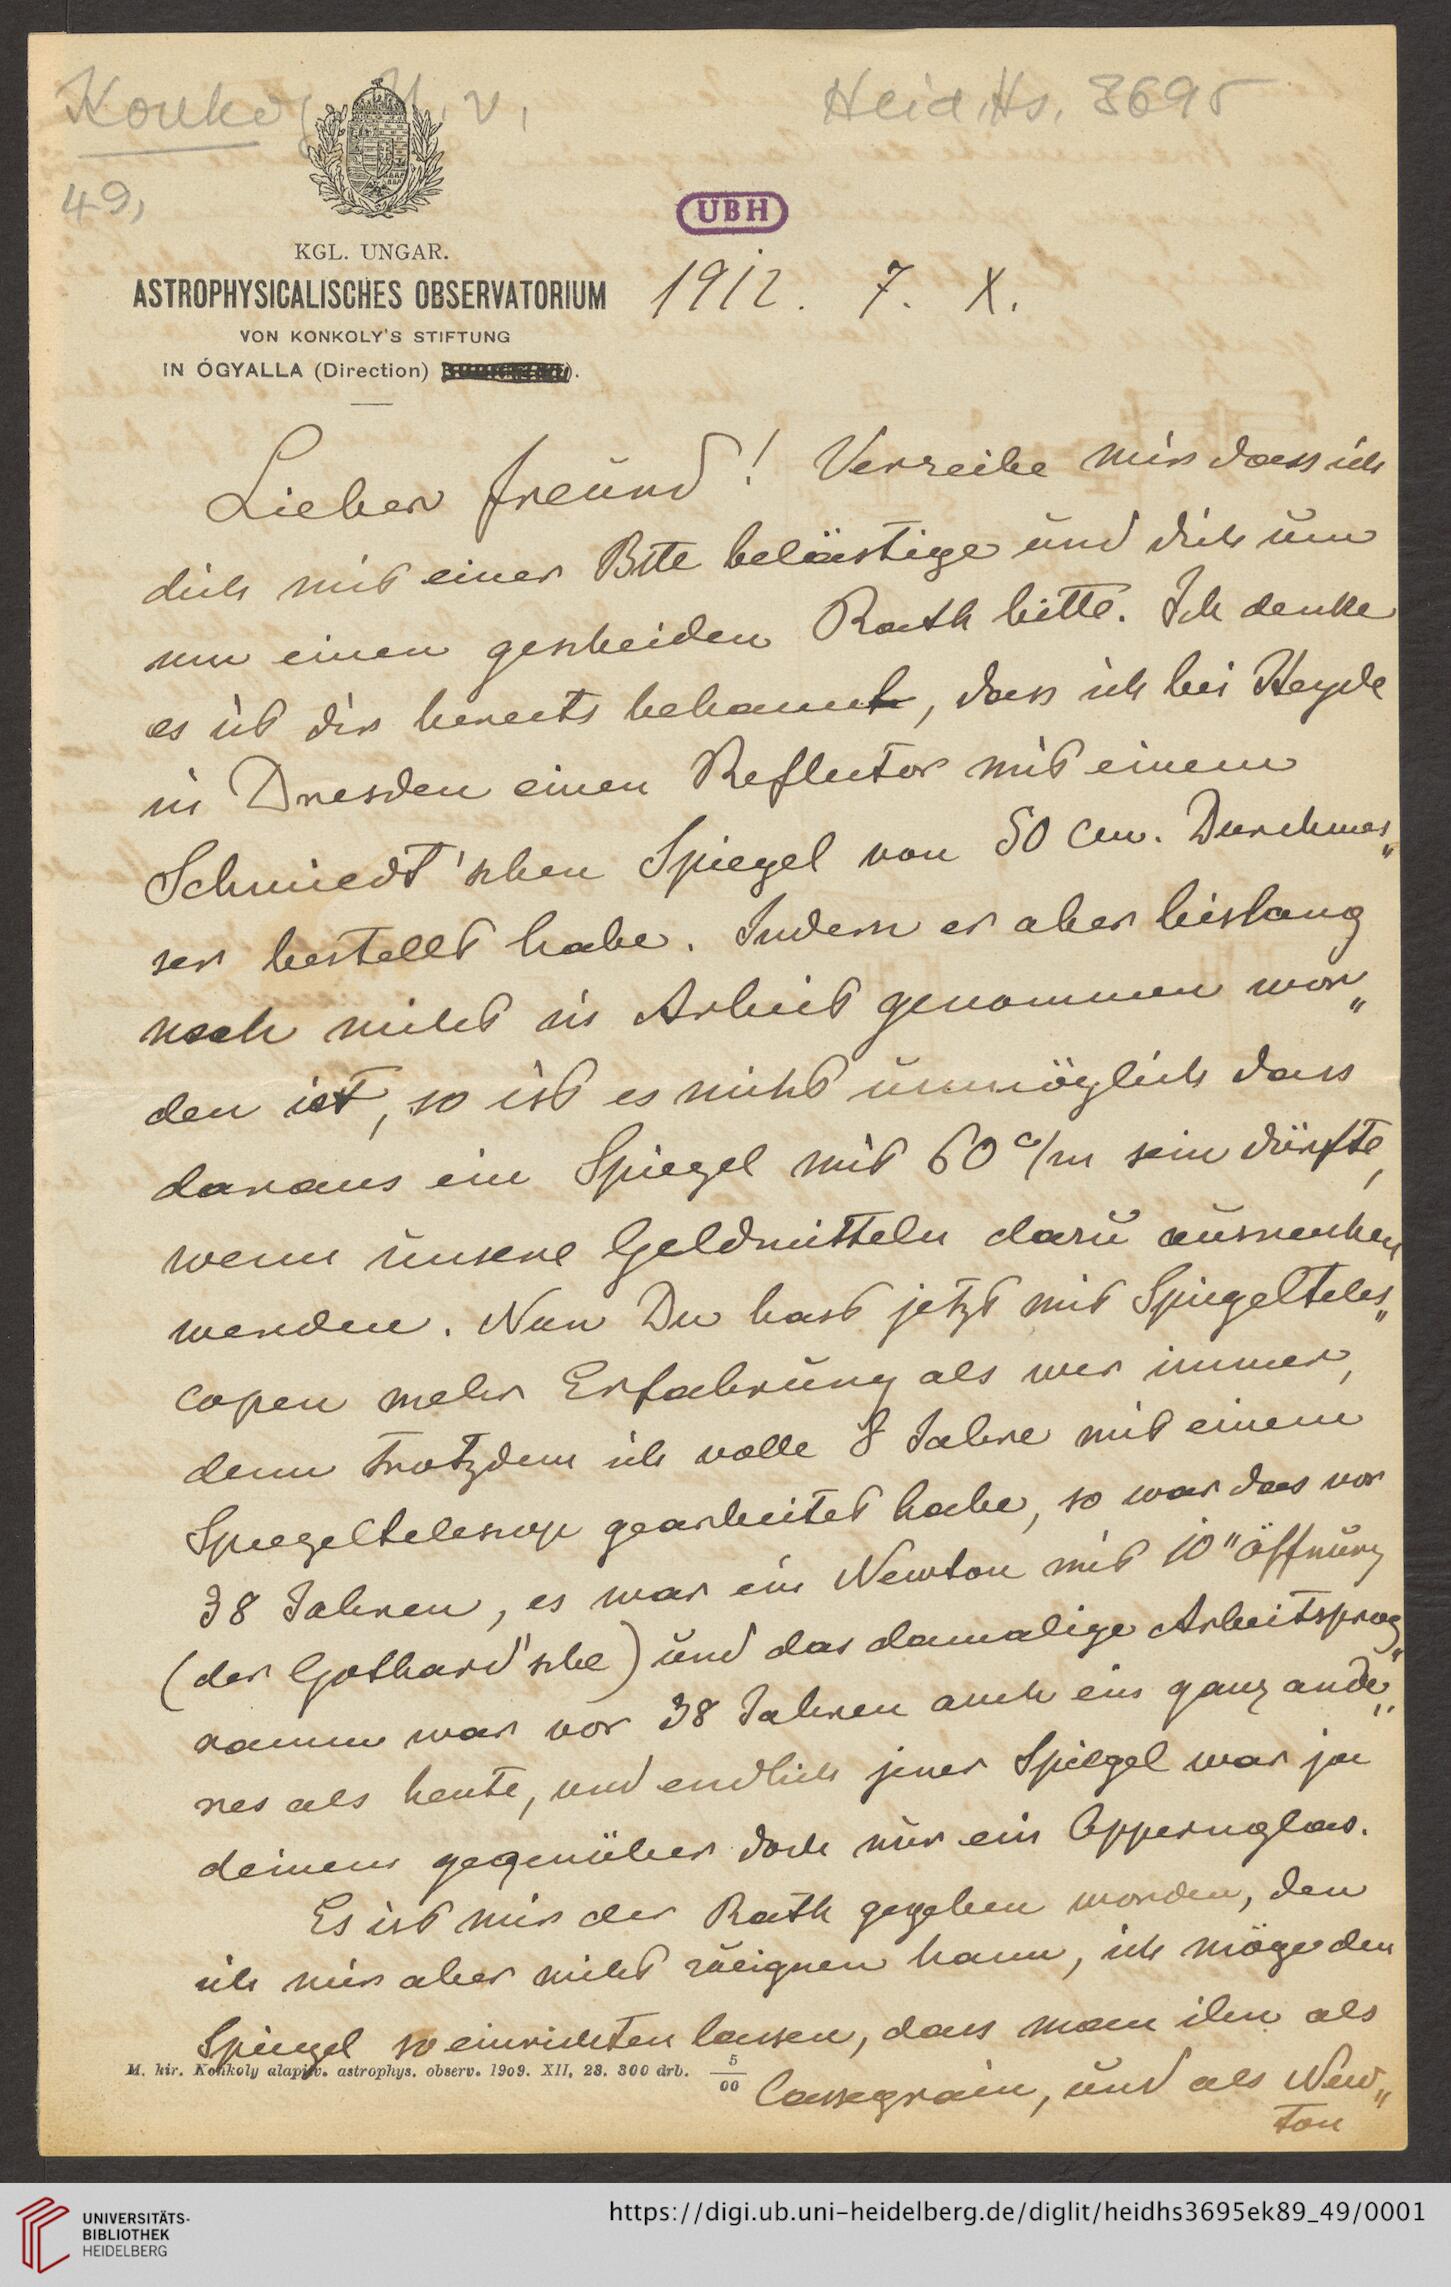 Konkoly, N. v.
Heid. Hs. 3695
49,
UBH
KGL. UNGAR.
ASTROPHYSICALISCHES OBSERVATORIUM
VON KONKOLY'S STIFTUNG
IN ÓGYALLA (Direction)
1912. 7. X.
Lieber Freund! Verzeihe mir dass ich
dich mit einer Btte belästige und dich um
um einen gescheiden Rath bitte. Ich denke
es ist dir bereits bekannt, dass ich bei Heyde
in Dresden einen Reflector mit einem
Schmiedt'schen Spiegel von 50 cm. Durchmes„
ser bestellt habe. Indem er aber bislang
noch nicht in Arbeit genommen wor„
den ist, so ist es nicht unmöglich dass
daraus ein Spiegel mit 60 c/m sein dürfte,
wenn unsere Geldmitteln dazu ausreichen
werden. Nun Du hast jetzt mit Spiegelteles„
copen mehr Erfahrung als wer immer,
denn trotzdem ich volle 8 Jahre mit einem
Spiegeltelescop gearbeitet habe, so war das vor
38 Jahren, es war ein Newton mit 10" öffnung
(der Gothard'sche) und das damalige Arbeitsprog„
ramm war vor 38 Jahren auch ein ganz ande„
res als heute, und endlich jener Spiegel war ja
deinem gegenüber doch nur ein Opernglas.
Es ist mir der Rath gegeben worden, den
ich mir aber nicht zueignen kann, ich möge den
Spiegel so einrichten lassen, dass man ihn als
Cassegrain, und als New„
ton
M. kir. Konkoly alapitv. astrophys. observ. 1909. XII, 23. 300 drb. 5/00
UNIVERSITÄTS-
BIBLIOTHEK
HEIDELBERG
https://digi.ub.uni-heidelberg.de/diglit/heidhs3695ek89_49/0001